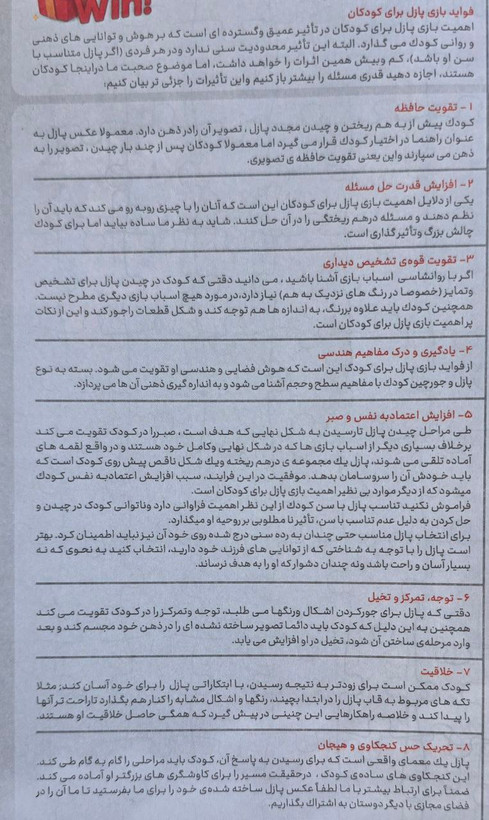 Win!
فواید بازی پازل برای کودکان
اهمیت بازی پازل برای کودکان در تأثیر عمیق وگسترده ای است که بر هوش و توانایی های ذهنی
و روانی کودك می گذارد. البته این تأثیر محدودیت سنی ندارد ودر هر فردی (اگر پازل متناسب با
سن او باشد)، کم وبیش همین اثرات را خواهد داشت، اما موضوع صحبت ما دراینجا کودکان
هستند، اجازه دهید قدری مسئله را بیشتر باز کنیم واین تأثیرات را جزئی تر بیان کنیم:
۱- تقویت حافظه
کودك پیش از به هم ریختن و چیدن مجدد پازل ، تصویر آن رادر ذهن دارد. معمولا عکس پازل به
عنوان راهنما در اختیار کودك قرار می گیرد اما معمولا کودکان پس از چند بار چیدن ، تصویر را به
ذهن می سپارند واین یعنی تقویت حافظه ی تصویری.
۲- افزایش قدرت حل مسئله
یکی از دلایل اهمیت بازی پازل برای کودکان این است که آنان را با چیزی روبه رو می کند که باید آن را
نظم دهند و مسئله درهم ریختگی را در آن حل کنند. شاید به نظر ما ساده بیاید اما برای کودك
چالش بزرگ وتأثیر گذاری است.
۳- تقویت قوه‌ی تشخیص دیداری
اگر با روانشناسی اسباب بازی آشنا باشید ، می دانید دقتی که کودک در چیدن پازل برای تشخیص
وتمایز (خصوصا در رنگ های نزدیک به هم) نیاز دارد، در مورد هیچ اسباب بازی دیگری مطرح نیست.
همچنین کودك باید علاوه بررنگ، به اندازه ها هم توجه کند و شکل قطعات راجور کند و این از نکات
پر اهمیت بازی پازل برای کودکان است.
۴- یادگیری و درک مفاهیم هندسی
از فواید بازی پازل برای کودک این است که هوش فضایی و هندسی او تقویت می شود. بسته به نوع
پازل و جورچین کودك با مفاهیم سطح وحجم آشنا می شود و به اندازه گیری ذهنی آن ها می پردازد.
۵- افزایش اعتمادبه نفس و صبر
طی مراحل چیدن پازل تارسیدن به شکل نهایی که هدف است ، صبررا در کودک تقویت می کند
برخلاف بسیاری دیگر از اسباب بازی ها که در شکل نهایی وکامل خود هستند و در واقع لقمه های
آماده تلقی می شوند، پازل یك مجموعه ی درهم ریخته ویك شکل ناقص پیش روی کودک است که
باید خودش آن را سروسامان بدهد. موفقیت در این فرایند، سبب افزایش اعتمادبه نفس کودك
میشود که از دیگر موارد بی نظیر اهمیت بازی پازل برای کودکان است.
فراموش نکنید تناسب پازل با سن کودك از این نظر اهمیت فراوانی دارد وناتوانی کودك در چیدن و
حل کردن به دلیل عدم تناسب با سن، تأثیر نا مطلوبی بر روحیه او میگذارد.
برای انتخاب پازل مناسب حتی چندان به رده سنی درج شده روی خود آن نیز نباید اطمینان کرد. بهتر
است پازل را با توجه به شناختی که از توانایی های فرزند خود دارید، انتخاب کنید به نحوی که نه
بسیار آسان و راحت باشد ونه چندان دشوار که او را به هدف نرساند.
۶- توجه، تمرکز و تخیل
دقتی که پازل برای جورکردن اشکال ورنگها می طلبد، توجه وتمرکز را در کودک تقویت می کند
همچنین به این دلیل که کودک باید دائما تصویر ساخته نشده ای را در ذهن خود مجسم کند و بعد
وارد مرحله‌ی ساختن آن شود، تخیل در او افزایش می یابد.
۷- خلاقیت
کودک ممکن است برای زودتر به نتیجه رسیدن، با ابتکاراتی پازل را برای خود آسان کند؛ مثلا
تکه های مربوط به قاب پازل را در ابتدا بچیند، رنگها و اشکال مشابه را کنار هم بگذارد تاراحت تر آنها
را پیدا کند و خلاصه راهکارهایی این چنینی در پیش گیرد که همگی حاصل خلاقیت او هستند.
۸- تحریک حس کنجکاوی و هیجان
پازل یك معمای واقعی است که برای رسیدن به پاسخ آن، کودک باید مراحلی را گام به گام طی کند.
این کنجکاوی های ساده‌ی کودک ، درحقیقت مسیر را برای کاوشگری های بزرگتر او آماده می کند.
ضمناً برای ارتباط بیشتر با ما لطفاً عکس پازل ساخته شده‌ی خود را برای ما بفرستید تا ما آن را در
فضای مجازی با دیگر دوستان به اشتراك بگذاریم.